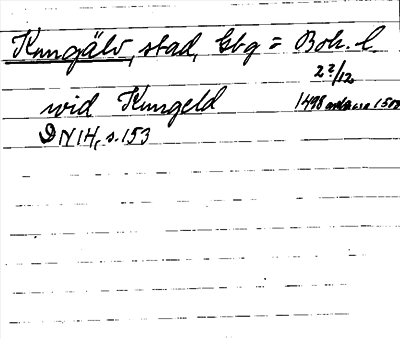 Kungälv, stad, Gbg = Boh. l.
2?/12
wid Kungeld
1498 1502
DN IH, s. 153